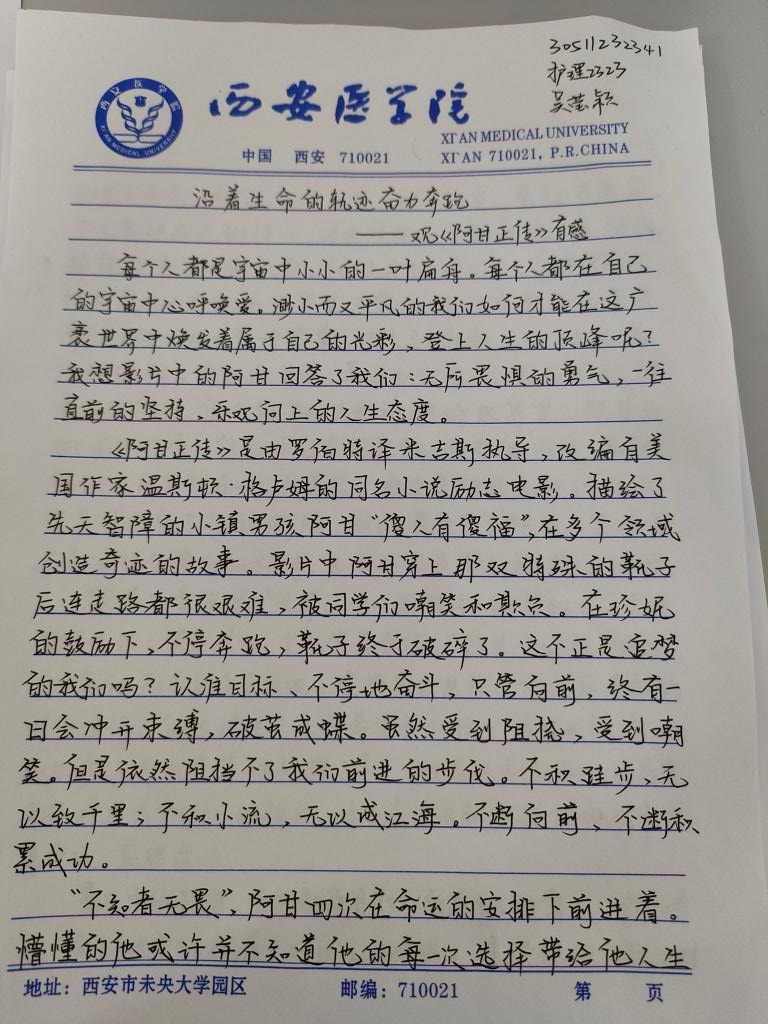 30511232341
护理2323
吴芸颖
西安医学院
XI'AN MEDICAL UNIVERSITY
西安医学院
XI'AN MEDICAL UNIVERSITY
中国 西安 710021
XI'AN 710021, P.R.CHINA
沿着生命的轨迹奋力奔跑
——观《阿甘正传》有感
每个人都是宇宙中小小的一叶扁舟。每个人都在自己
的宇宙中心呼唤爱。渺小而又平凡的我们如何才能在这广
袤世界中焕发着属于自己的光彩，登上人生的顶峰呢？
我想影片中的阿甘回答了我们：无所畏惧的勇气，一往
直前的坚持，乐观向上的人生态度。
《阿甘正传》是由罗伯特译米吉斯执导，改编自美
国作家温斯顿·格卢姆的同名小说励志电影。描绘了
先天智障的小镇男孩阿甘“傻人有傻福”，在多个领域
创造奇迹的故事。影片中阿甘穿上那双特殊的靴子
后连走路都很艰难，被同学们嘲笑和欺负。在珍妮
的鼓励下，不停奔跑，靴子终于破碎了。这不正是追梦
的我们吗？认准目标、不停地奋斗，只管向前，终有一
日会冲开束缚，破茧成蝶。虽然受到阻挠，受到嘲
笑。但是依然阻挡不了我们前进的步伐。不积跬步，无
以致千里；不积小流，无以成江海。不断向前、不断积
累成功。
“不知者无畏”，阿甘四次在命运的安排下前进着。
懵懂的他或许并不知道他的每一次选择带给他人生
地址：西安市未央大学园区
邮编：710021
第 页